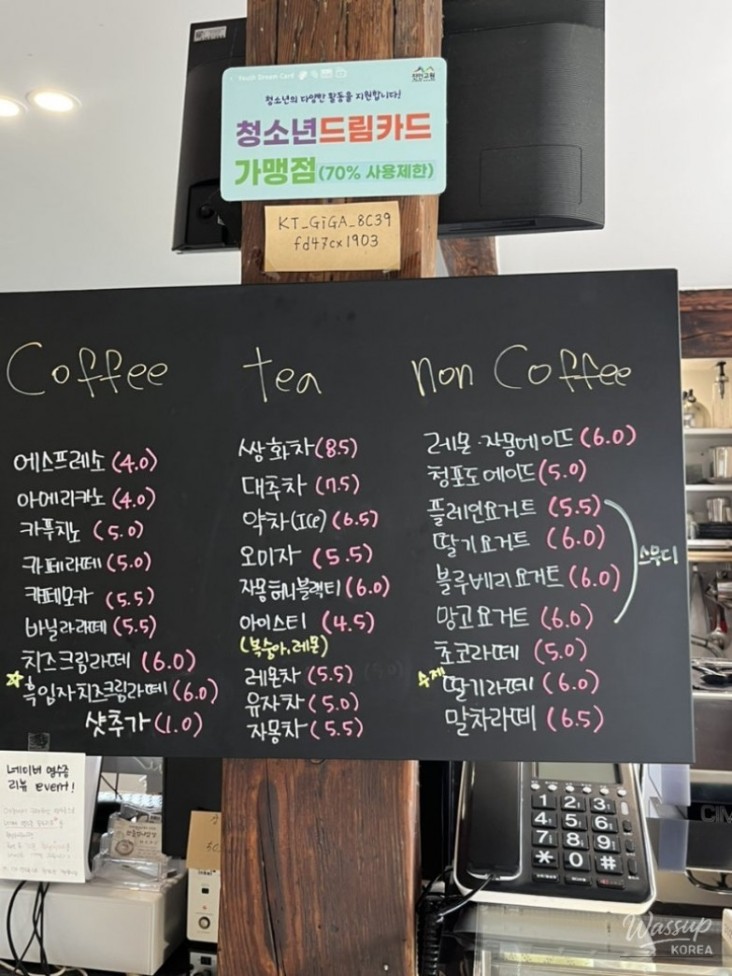 Youth Dream Card
청소년의 다양한 활동을 지원합니다!
청소년드림카드
가맹점(70% 사용제한)
KT_GiGA_8C39
fd47cx1903
Coffee
에스프레소 (4.0)
아메리카노 (4.0)
카푸치노 (5.0)
카페라떼 (5.0)
카페모카 (5.5)
바닐라라떼 (5.5)
치즈크림라떼 (6.0)
☆흑임자치즈크림라떼 (6.0)
샷추가 (1.0)
tea
쌍화차 (8.5)
대추차 (7.5)
약차(ICE) (6.5)
오미자 (5.5)
자몽허니블랙티 (6.0)
아이스티 (4.5)
(복숭아, 레몬)
레몬차 (5.5)
유자차 (5.0)
자몽차 (5.5)
non Coffee
레몬·자몽에이드 (6.0)
청포도에이드 (5.0)
플레인요거트 (5.5)
딸기요거트 (6.0)
블루베리요거트 (6.0)
망고요거트 (6.0)
스무디
초코라떼 (5.0)
수제 딸기라떼 (6.0)
말차라떼 (6.5)
네이버 영수증
리뷰 event!
1 2 3
4 5 6
7 8 9
* 0 #
CIM
Wassup
KOREA